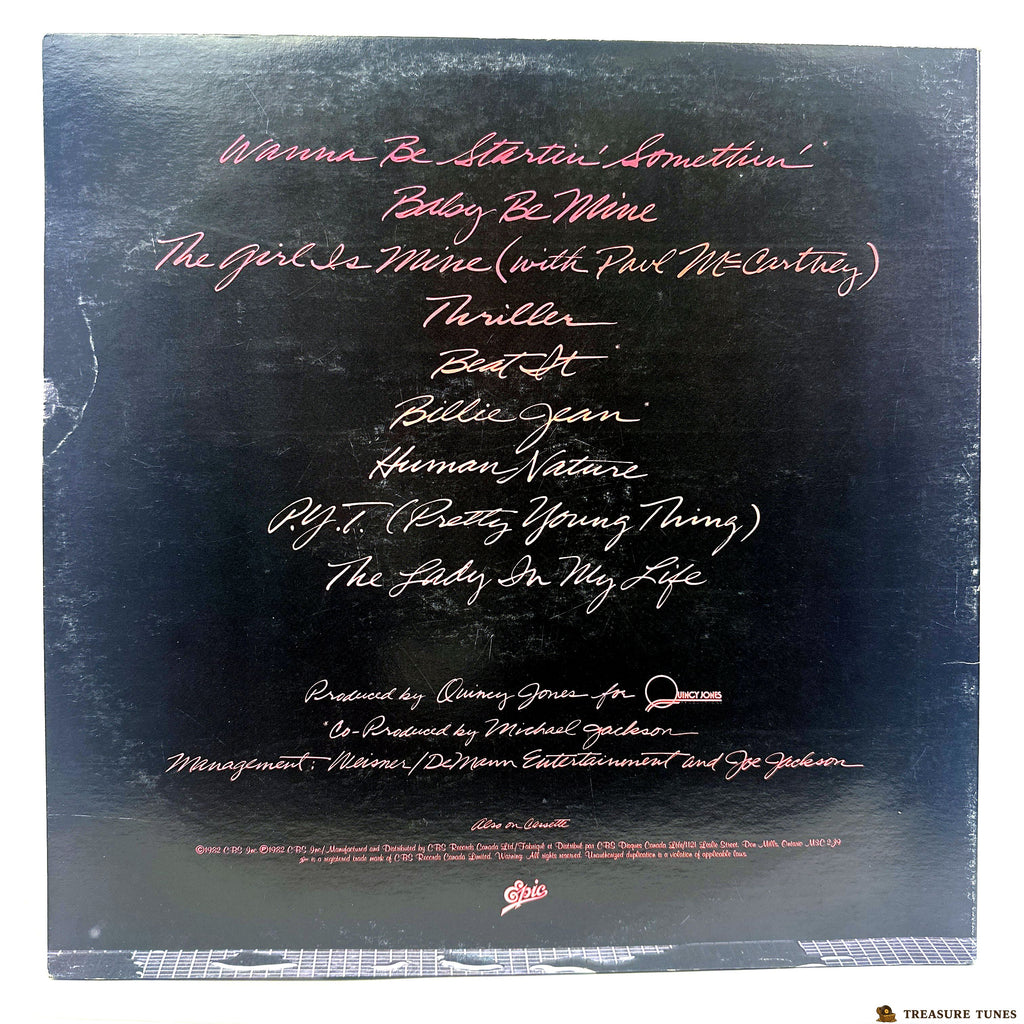 Wanna Be Startin' Somethin'*
Baby Be Mine
The Girl Is Mine (with Paul McCartney)
Thriller
Beat It
Billie Jean*
Human Nature
P.Y.T. (Pretty Young Thing)
The Lady In My Life
Produced by Quincy Jones for QUINCY JONES
*Co-Produced by Michael Jackson
Management: Weisner/DeMann Entertainment and Joe Jackson
Also on Cassette
©1982 CBS Inc. ℗1982 CBS Inc/Manufactured and Distributed by CBS Records Canada Ltd/Fabriqué et Distribué par CBS Disques Canada Ltée/1121 Leslie Street, Don Mills, Ontario M3C 2J9
is a registered trade mark of CBS Records Canada Limited. Warning: All rights reserved. Unauthorized duplication is a violation of applicable laws.
Epic
TREASURE TUNES